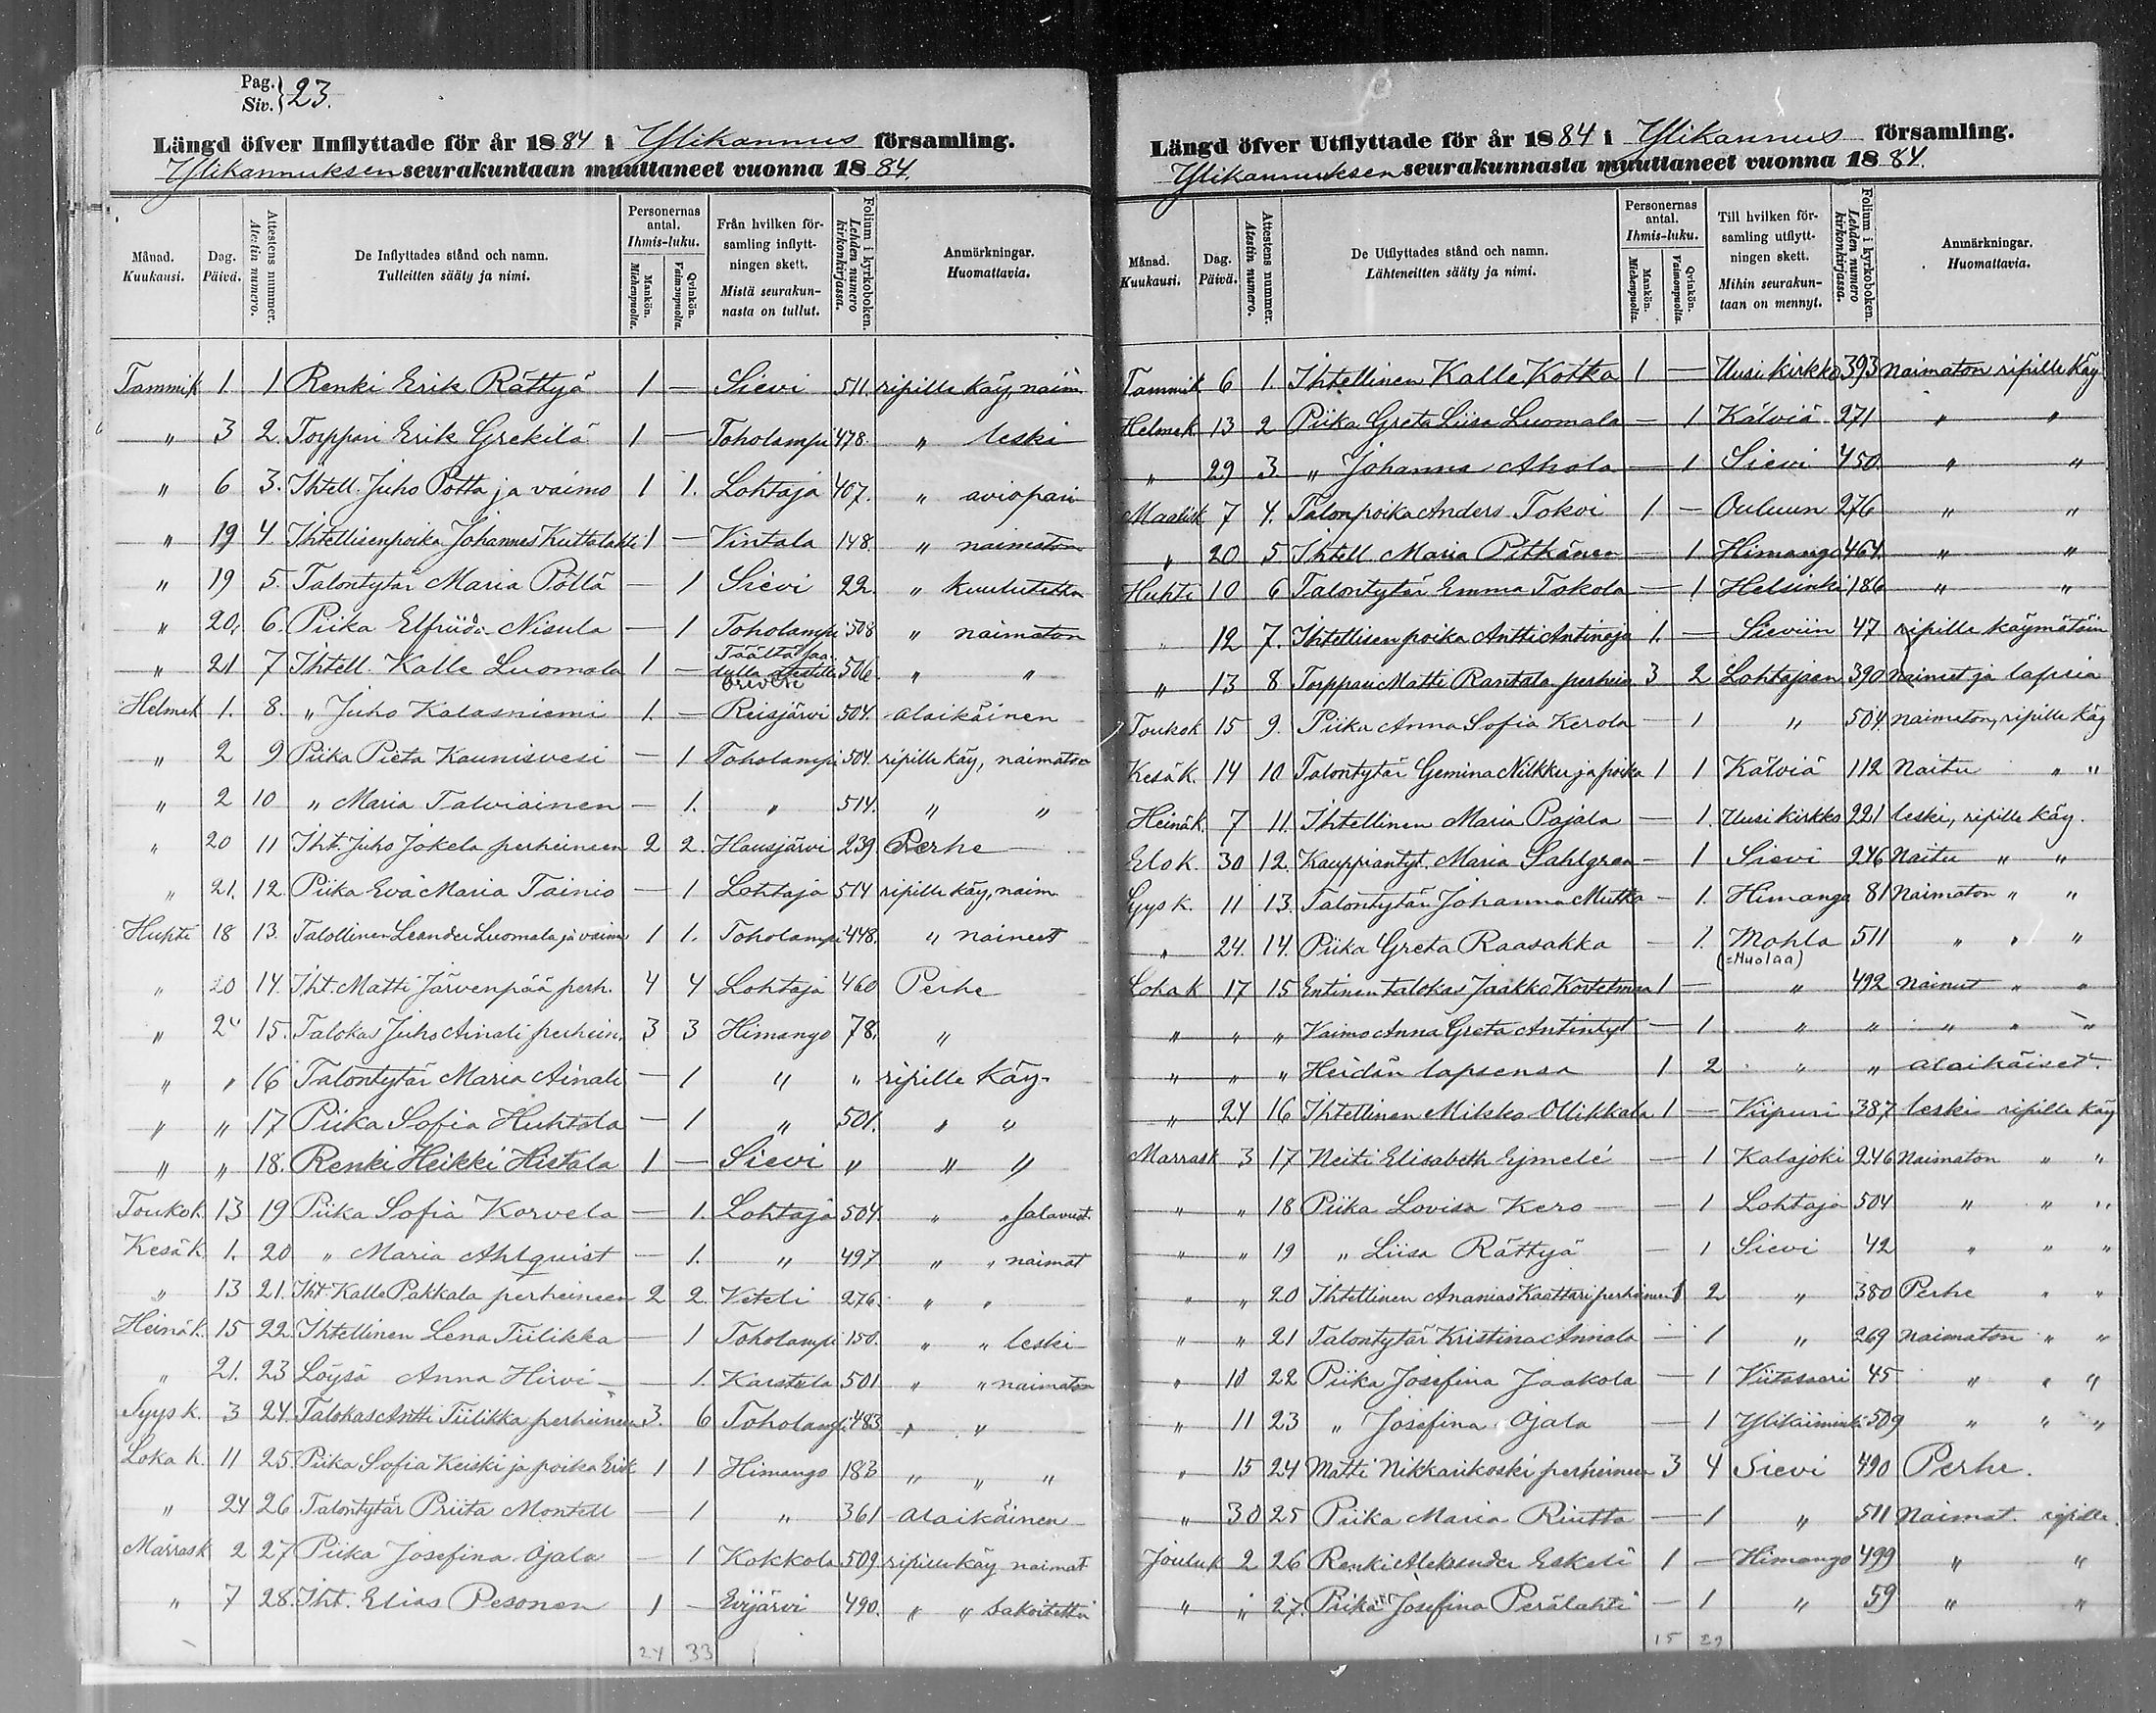 Pag.
Siv. } 23.
Längd öfver Inflyttade för år 1884 i Ylikannus församling.
Ylikannuksen seurakuntaan muuttaneet vuonna 1884.
Månad. Kuukausi. Dag. Päivä. Attestens nummer. Atestin numero. De Inflyttades stånd och namn. Tulleitten sääty ja nimi. Personernas antal. Ihmis-luku. Mankön. Miehenpuolta. Qvinkön. Vaimonpuolta. Från hvilken församling inflyttningen skett. Mistä seurakunnasta on tullut. Folium i kyrkoboken. Lehden numero kirkonkirjassa. Anmärkningar. Huomattavia.
Tammik 1 1 Renki Erik Rättyä 1 — Sievi 511. ripille käy, naim
" 3 2. Torppari Erik Grekilä 1 — Toholampi 478. " leski
" 6 3. Ihtell. Juho Potta ja vaimo 1 1. Lohtaja 407. " aviopari
" 19 4. Ihtellisenpoika Johannes 1 — Vintala 148. " naimaton
" 19 5. Talontytär Maria Pöllä — 1 Sievi 22. " kuulutettu
" 20, 6. Piika Elfriida Nisula — 1 Toholampi 508 " naimaton
" 21 7 Ihtell. Kalle Luomala 1 — Täältä 506. " "
Helmek 1. 8. " Juho Kalasniemi 1. — Reisjärvi 504. alaikäinen
" 2 9 Piika Pieta Kaunisvesi — 1 Toholampi 504. ripille käy, naimaton
" 2 10 " Maria Talviainen — 1. " 514. " "
" 20 11 Iht. Juho Jokela perheineen 2 2. Hausjärvi 239. Perhe
" 21. 12. Piika Eva Maria Tainio — 1 Lohtaja 514 ripille käy, naim
Huhti 18 13. Talollinen Leander Luomala ja vaim 1 1. Toholampi 448. " naineet
" 20 14. Iht. Matti Järvenpää perh. 4 4 Lohtaja 460 Perhe
" 24 15. Talokas Juho Ainali perhein. 3 3 Himango 78. "
" " 16 Talontytär Maria Ainali — 1 " " ripille käy
" " 17 Piika Sofia Huhtala — 1 " 501. " "
" " 18. Renki Heikki Hietala 1 — Sievi " " "
Toukok. 13 19 Piika Sofia Korvela — 1. Lohtaja 504. " "
Kesäk. 1. 20 " Maria Ahlquist — 1. " 497 " " naimat
" 13 21. Iht Kalle Pakkala perheineen 2 2. Veteli 276. " "
Heinäk. 15 22. Ihtellinen Lena Tiilikka — 1 Toholampi 150. " " leski
" 21. 23 Löysä Anna Hirvi — 1. Karstula 501 " " naimaton
Syysk. 3 24. Talokas Antti Tiilikka perheineen 3. 6 Toholampi 483. " "
Lokak. 11 25. Piika Sofia Keiski ja poika Erik 1 1 Himango 183 " " "
" 24 26 Talontytär Priita Montell — 1 " 361 alaikäinen
Marrask 2 27 Piika Josefina Ojala — 1 Kokkola 509. ripille käy naimat
" 7 28. Iht. Elias Pesonen 1 — Evijärvi 490. " " sakoitettu
24 33
Längd öfver Utflyttade för år 1884 i Ylikannus församling.
Ylikannuksen seurakunnasta muuttaneet vuonna 1884.
Månad. Kuukausi. Dag. Päivä. Attestens nummer. Atestin numero. De Utflyttades stånd och namn. Lähteneitten sääty ja nimi. Personernas antal. Ihmis-luku. Mankön. Miehenpuolta. Qvinkön. Vaimonpuolta. Till hvilken församling utflyttningen skett. Mihin seurakuntaan on mennyt. Folium i kyrkoboken. Lehden numero kirkonkirjassa. Anmärkningar. Huomattavia.
Tammik 6 1. Ihtellinen Kalle Kotka 1 — Uusikirkko 393 naimaton ripille käy
Helmek 13 2 Piika Greta Liisa Luomala — 1 Kälviä 271 " "
" 29 3. " Johanna Ahola — 1 Sievi 450. " "
Maalisk 7 4. Talonpoika Anders Tokoi 1 — Ouluun 276 " "
" 20 5 Ihtell. Maria Pitkänen — 1 Himango 464. " "
Huhti 10 6 Talontytär Emma Tokola — 1 Helsinki 186 " "
" 12 7. Ihtellisenpoika Antti Antinoja 1. — Sieviin 47 ripille käymätöin
" 13 8 Torppari Matti Rantala perhein 3 2 Lohtajaen 390. Naineet ja lapsia
Toukok 15 9. Piika Anna Sofia Kerola — 1 " 504. naimaton, ripille käy
Kesäk. 14 10 Talontytär Gemina Nilkku ja poika 1 1 Kälviä 112 Naitu " "
Heinäk. 7 11. Ihtellinen Maria Pajala — 1. Uusikirkko 221 leski, ripille käy.
Elok. 30 12. Kauppiantyt. Maria Sahlgren — 1 Sievi 246 Naitu " "
Syysk. 11 13. Talontytär Johanna Mutka — 1. Himanga 81 Naimaton " "
" 24. 14. Piika Greta Raasakka — 1. Mohla (=Muolaa) 511 " " "
Lokak 17 15 Entinen talokas Jaakko 1 — " 492 Nainut " "
" " " Vaimo Anna Greta Antintyt — 1. " " " " "
" " " Heidän lapsensa 1 2 " " alaikäiset.
" 24 16 Ihtellinen Mikko Ollikkala 1 — Viipuri 387 leski ripille käy
Marrask 3 17 Neiti Elisabeth Ejmelé — 1 Kalajoki 246 Naimaton " "
" " 18 Piika Lovisa Kero — 1 Lohtaja 504 " " "
" " 19 " Liisa Rättyä — 1 Sievi 42 " " "
" " 20 Ihtellinen Ananias Kaattari perheineen 1 2 " 380 Perhe " "
" " 21 Talontytär Kristina Annala — 1 " 269 naimaton " "
" 10 22 Piika Josefina Jaakola — 1 Viitasaari 45 " " "
" 11 23 " Josefina Ojala — 1 Ylikiiminki 509 " " "
" 15 24 Matti Nikkarikoski perheineen 3 4 Sievi 490 Perhe.
" 30 25 Piika Maria Riutta — 1 " 511 Naimat. ripille.
Jouluk 2 26 Renki Aleksander Eskeli 1 — Himango 499 " "
" " 27. Piika Josefina Perälahti — 1 " 59 " "
15 29